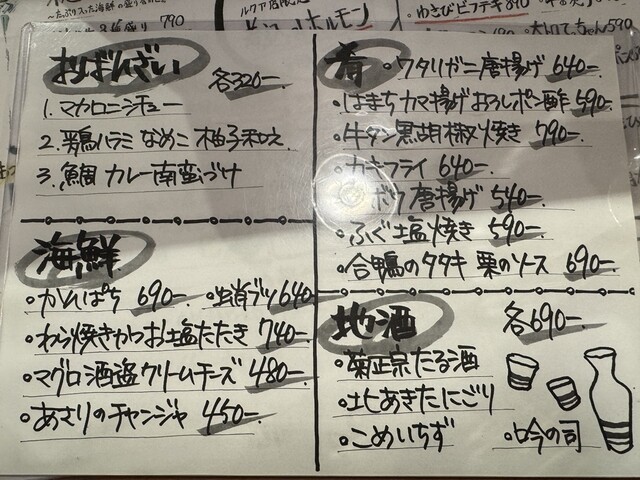 790
ゆさびビフテキ890
おばんざい 各320ー
1. マカロニシチュー
2. 鶏ハラミ なめこ 柚子和え
3. 鯛 カレー南蛮づけ
海鮮
・かんぱち 690ー ・生肖ブツ 640ー
・わら焼きかつお塩たたき 740ー
・マグロ酒盗クリームチーズ 480ー
・あさりのチャンジャ 450ー
肴 ・ワタリガニ唐揚げ 640ー
・はまちカマ揚げおろしポン酢 590ー
・牛タン黒胡椒焼き 790ー
・カキフライ 640ー
唐揚げ 540ー
・ふぐ塩焼き 590ー
・合鴨のタタキ 栗のソース 690ー
地酒 各690ー
・菊正宗たる酒
・北あきたにごり
・こめいちず ・吟の司